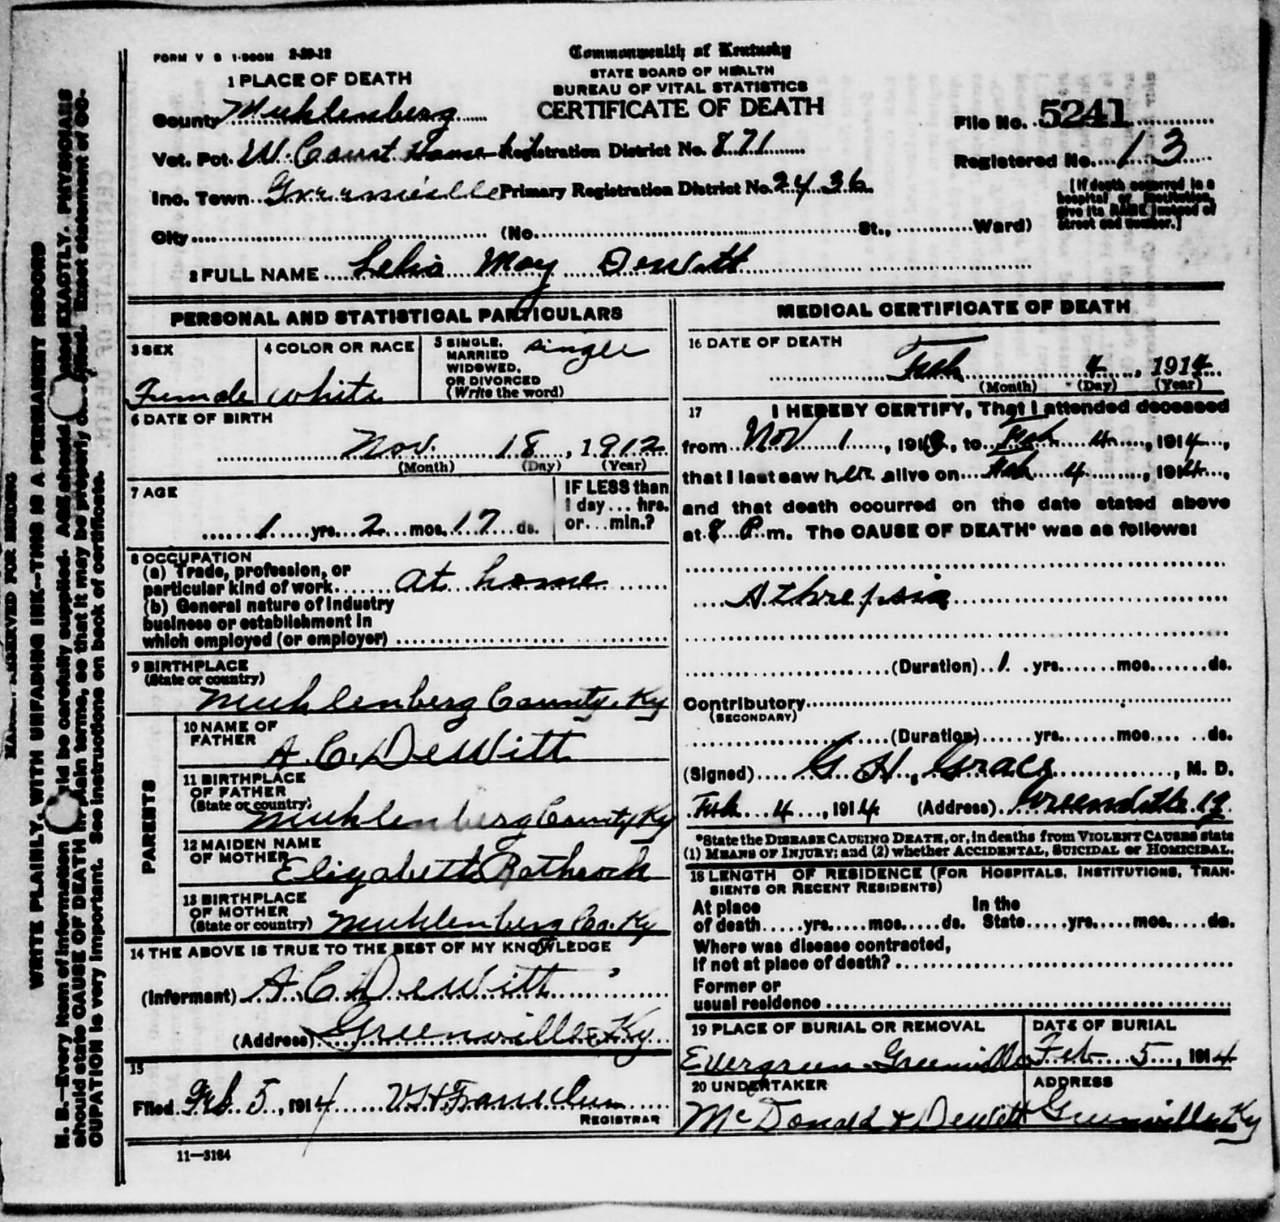 FORM V S 1-500M 2-29-12
Commonwealth of Kentucky
STATE BOARD OF HEALTH
BUREAU OF VITAL STATISTICS
CERTIFICATE OF DEATH
1 PLACE OF DEATH
County Muhlenberg
Vot. Pct. W. Court House Registration District No. 871
Inc. Town Greenville Primary Registration District No. 2436
City (No. St., Ward)
File No. 5241
Registered No. 13
[If death occurred in a hospital or institution, give its NAME instead of street and number.]
2 FULL NAME Lelia May DeWitt
PERSONAL AND STATISTICAL PARTICULARS
3 SEX Female
4 COLOR OR RACE white
5 SINGLE, MARRIED WIDOWED, OR DIVORCED (Write the word) single
6 DATE OF BIRTH
Nov. 18, 1912
(Month) (Day) (Year)
7 AGE
1 yrs. 2 mos. 17 ds.
IF LESS than 1 day... hrs. or... min.?
8 OCCUPATION
(a) Trade, profession, or
particular kind of work at home
(b) General nature of industry
business or establishment in
which employed (or employer)
9 BIRTHPLACE
(State or country)
Muhlenberg County. Ky
PARENTS
10 NAME OF FATHER
A. C. DeWitt
11 BIRTHPLACE OF FATHER
(State or country)
Muhlenberg County Ky
12 MAIDEN NAME OF MOTHER
Elizabeth Rothrock
13 BIRTHPLACE OF MOTHER
(State or country) Muhlenberg Co. Ky
14 THE ABOVE IS TRUE TO THE BEST OF MY KNOWLEDGE
(Informant) A. C. DeWitt
(Address) Greenville Ky
15
Filed Feb 5, 1914
REGISTRAR
11-3184
MEDICAL CERTIFICATE OF DEATH
16 DATE OF DEATH
Feb 4, 1914
(Month) (Day) (Year)
17 I HEREBY CERTIFY, That I attended deceased
from Nov 1, 1913, to Feb 4, 1914,
that I last saw her alive on Feb 4, 1914,
and that death occurred on the date stated above
at 8 P. m. The CAUSE OF DEATH* was as follows:
Athrepsia
(Duration) 1 yrs. mos. ds.
Contributory
(SECONDARY)
(Duration) yrs. mos. ds.
(Signed) G. H. Grace, M. D.
Feb 4, 1914 (Address) Greenville Ky
*State the DISEASE CAUSING DEATH, or, in deaths from VIOLENT CAUSES state
(1) MEANS OF INJURY; and (2) whether ACCIDENTAL, SUICIDAL or HOMICIDAL.
18 LENGTH OF RESIDENCE (FOR HOSPITALS, INSTITUTIONS, TRANSIENTS OR RECENT RESIDENTS)
At place of death yrs. mos. ds. In the State yrs. mos. ds.
Where was disease contracted,
If not at place of death?
Former or
usual residence
19 PLACE OF BURIAL OR REMOVAL
Evergreen Greenville
DATE OF BURIAL
Feb 5, 1914
20 UNDERTAKER
McDonald & Dewitt
ADDRESS
Greenville Ky
WRITE PLAINLY, WITH UNFADING INK—THIS IS A PERMANENT RECORD
N. B.—Every item of information should be carefully supplied. AGE should be stated EXACTLY. PHYSICIANS
should state CAUSE OF DEATH in plain terms, so that it may be properly classified. Exact statement of OC-
CUPATION is very important. See instructions on back of certificate.